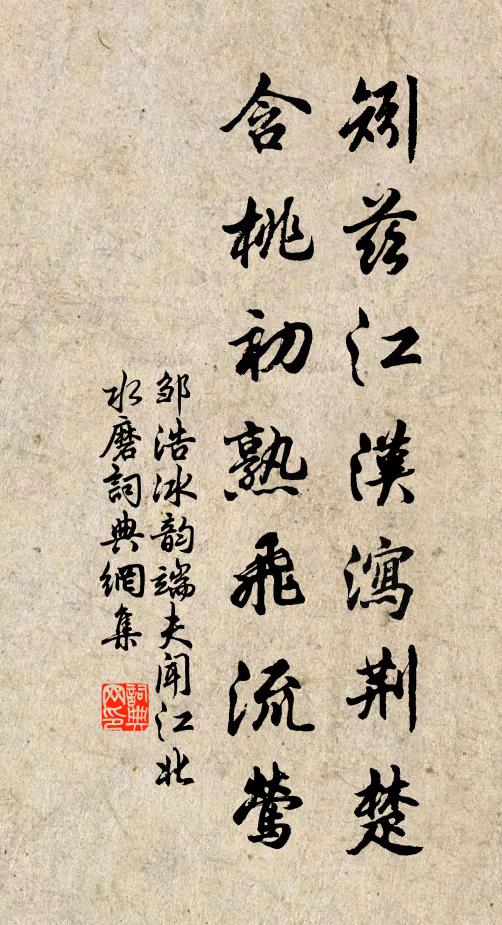 矧兹江漢瀉荆楚
含桃初熟飛流鶯
邹浩冰韵端夫闻江北
水磨詞典網集
詞典
网印